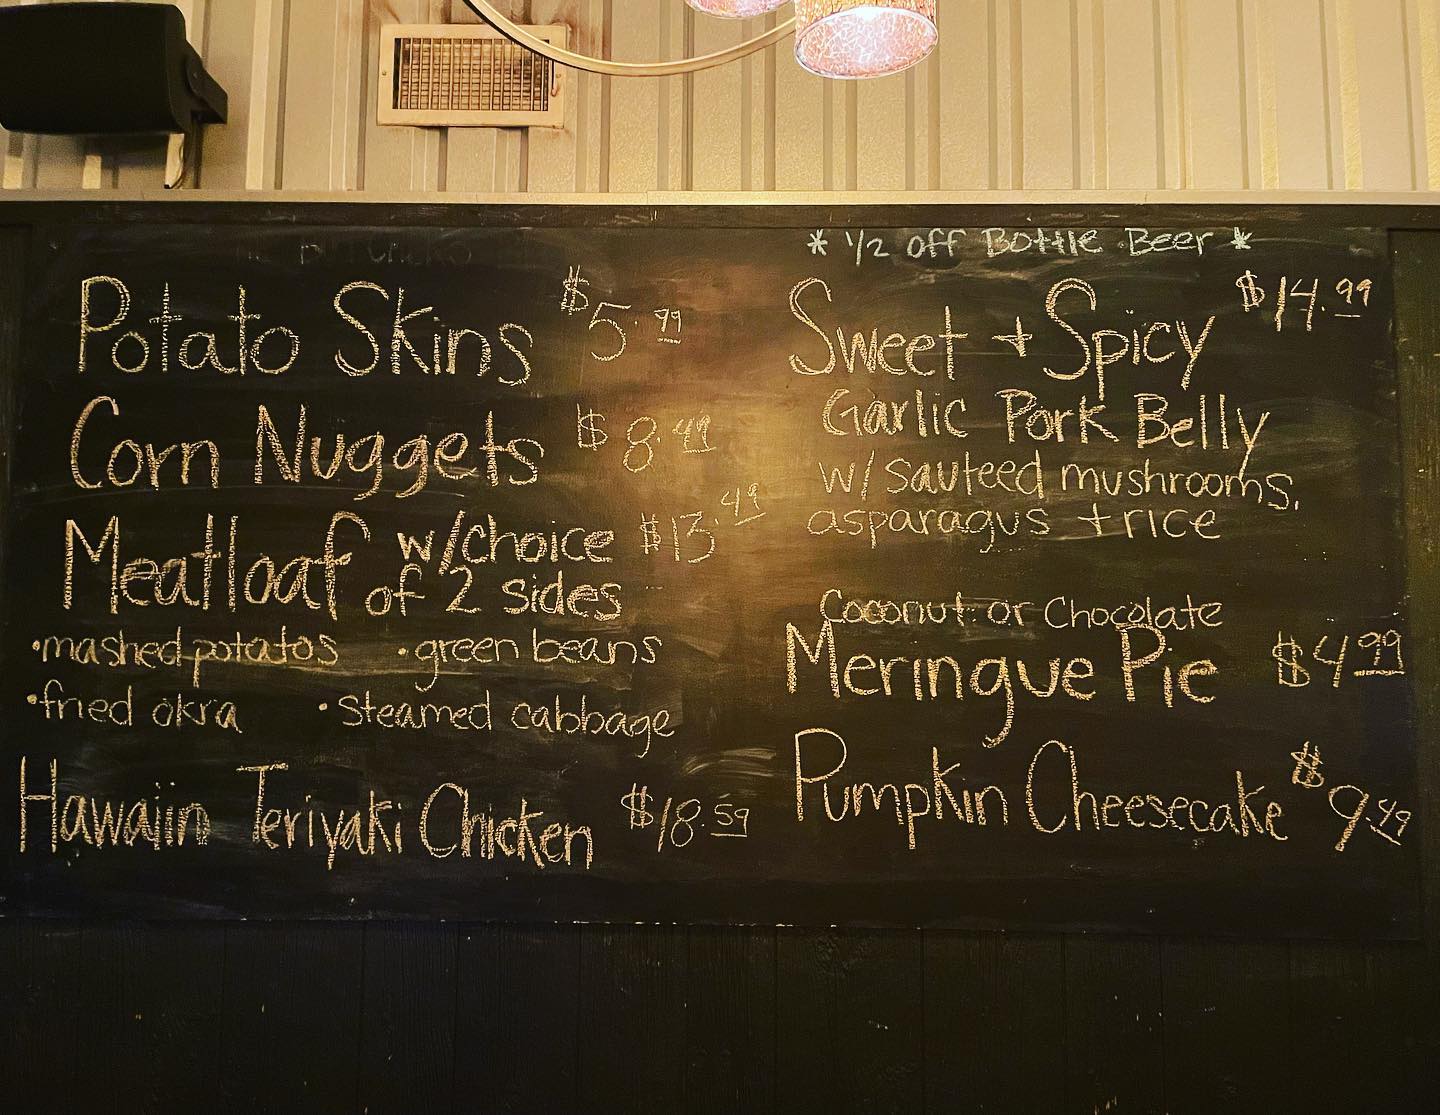 Potato Skins $5.99
Corn Nuggets $8.49
Meatloaf w/choice $13.49
of 2 sides
•mashed potatos •green beans
•fried okra •steamed cabbage
Hawaiin Teriyaki Chicken $18.59
* 1/2 off Bottle Beer *
Sweet + Spicy $14.99
Garlic Pork Belly
w/ sauteed mushrooms,
asparagus + rice
Coconut or Chocolate
Meringue Pie $4.99
Pumpkin Cheesecake $9.49